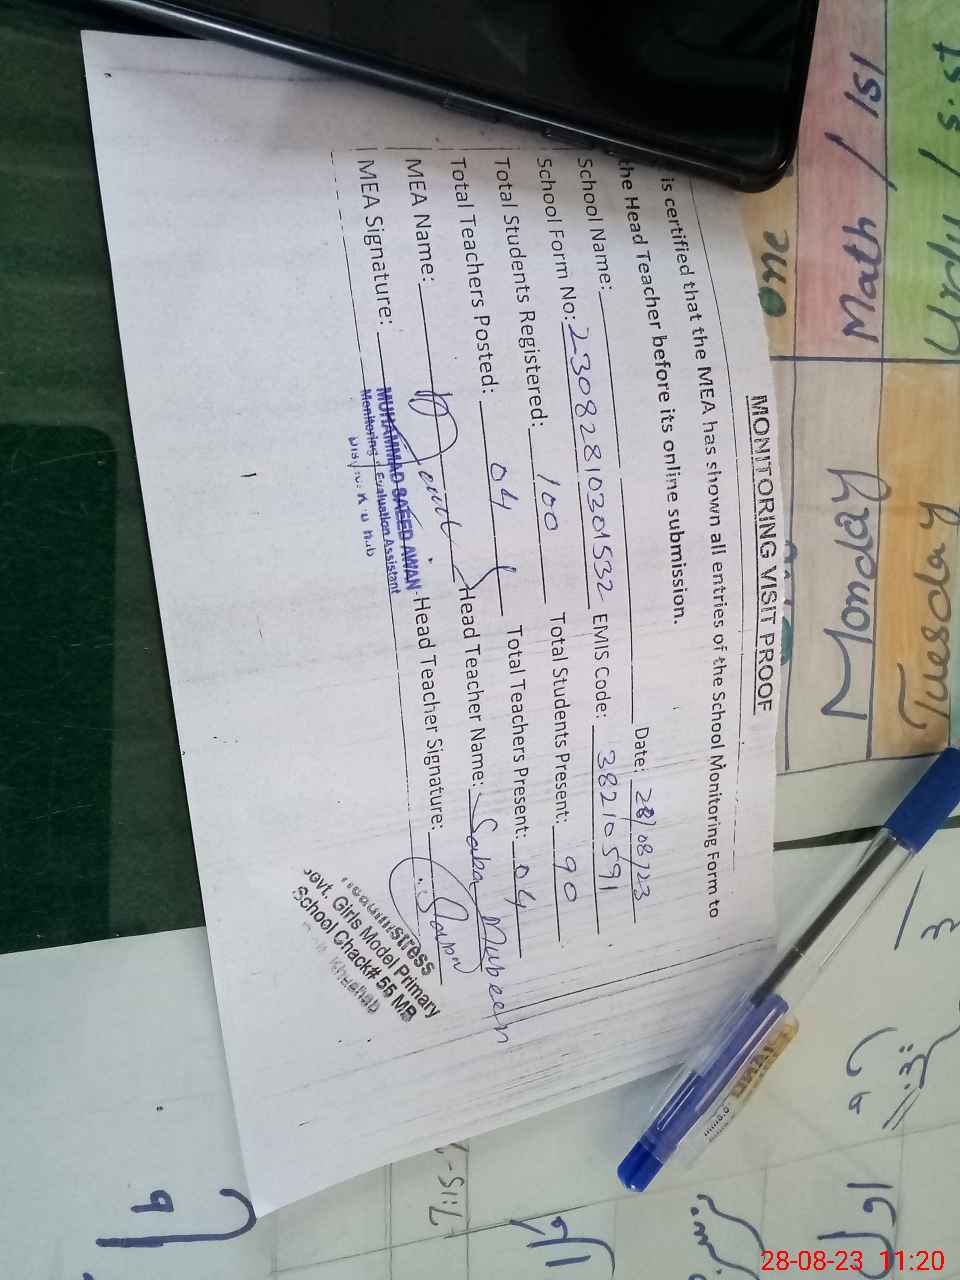 MONITORING VISIT PROOF
is certified that the MEA has shown all entries of the School Monitoring Form to
the Head Teacher before its online submission.
School Name: Date: 28/08/23
School Form No: 2308281030 1532 EMIS Code: 38210591
Total Students Registered: 100 Total Students Present: 90
Total Teachers Posted: 04 Total Teachers Present: 04
MEA Name: Head Teacher Name: Saba Mubeen
MEA Signature: Head Teacher Signature:
MUHAMMAD SAEED AWAN
Monitoring & Evaluation Assistant
Headmistress
Govt. Girls Model Primary
School Chack# 55 MB
Khushab
Math / 1st
Monday
Tuesday
اول
28-08-23 11:20